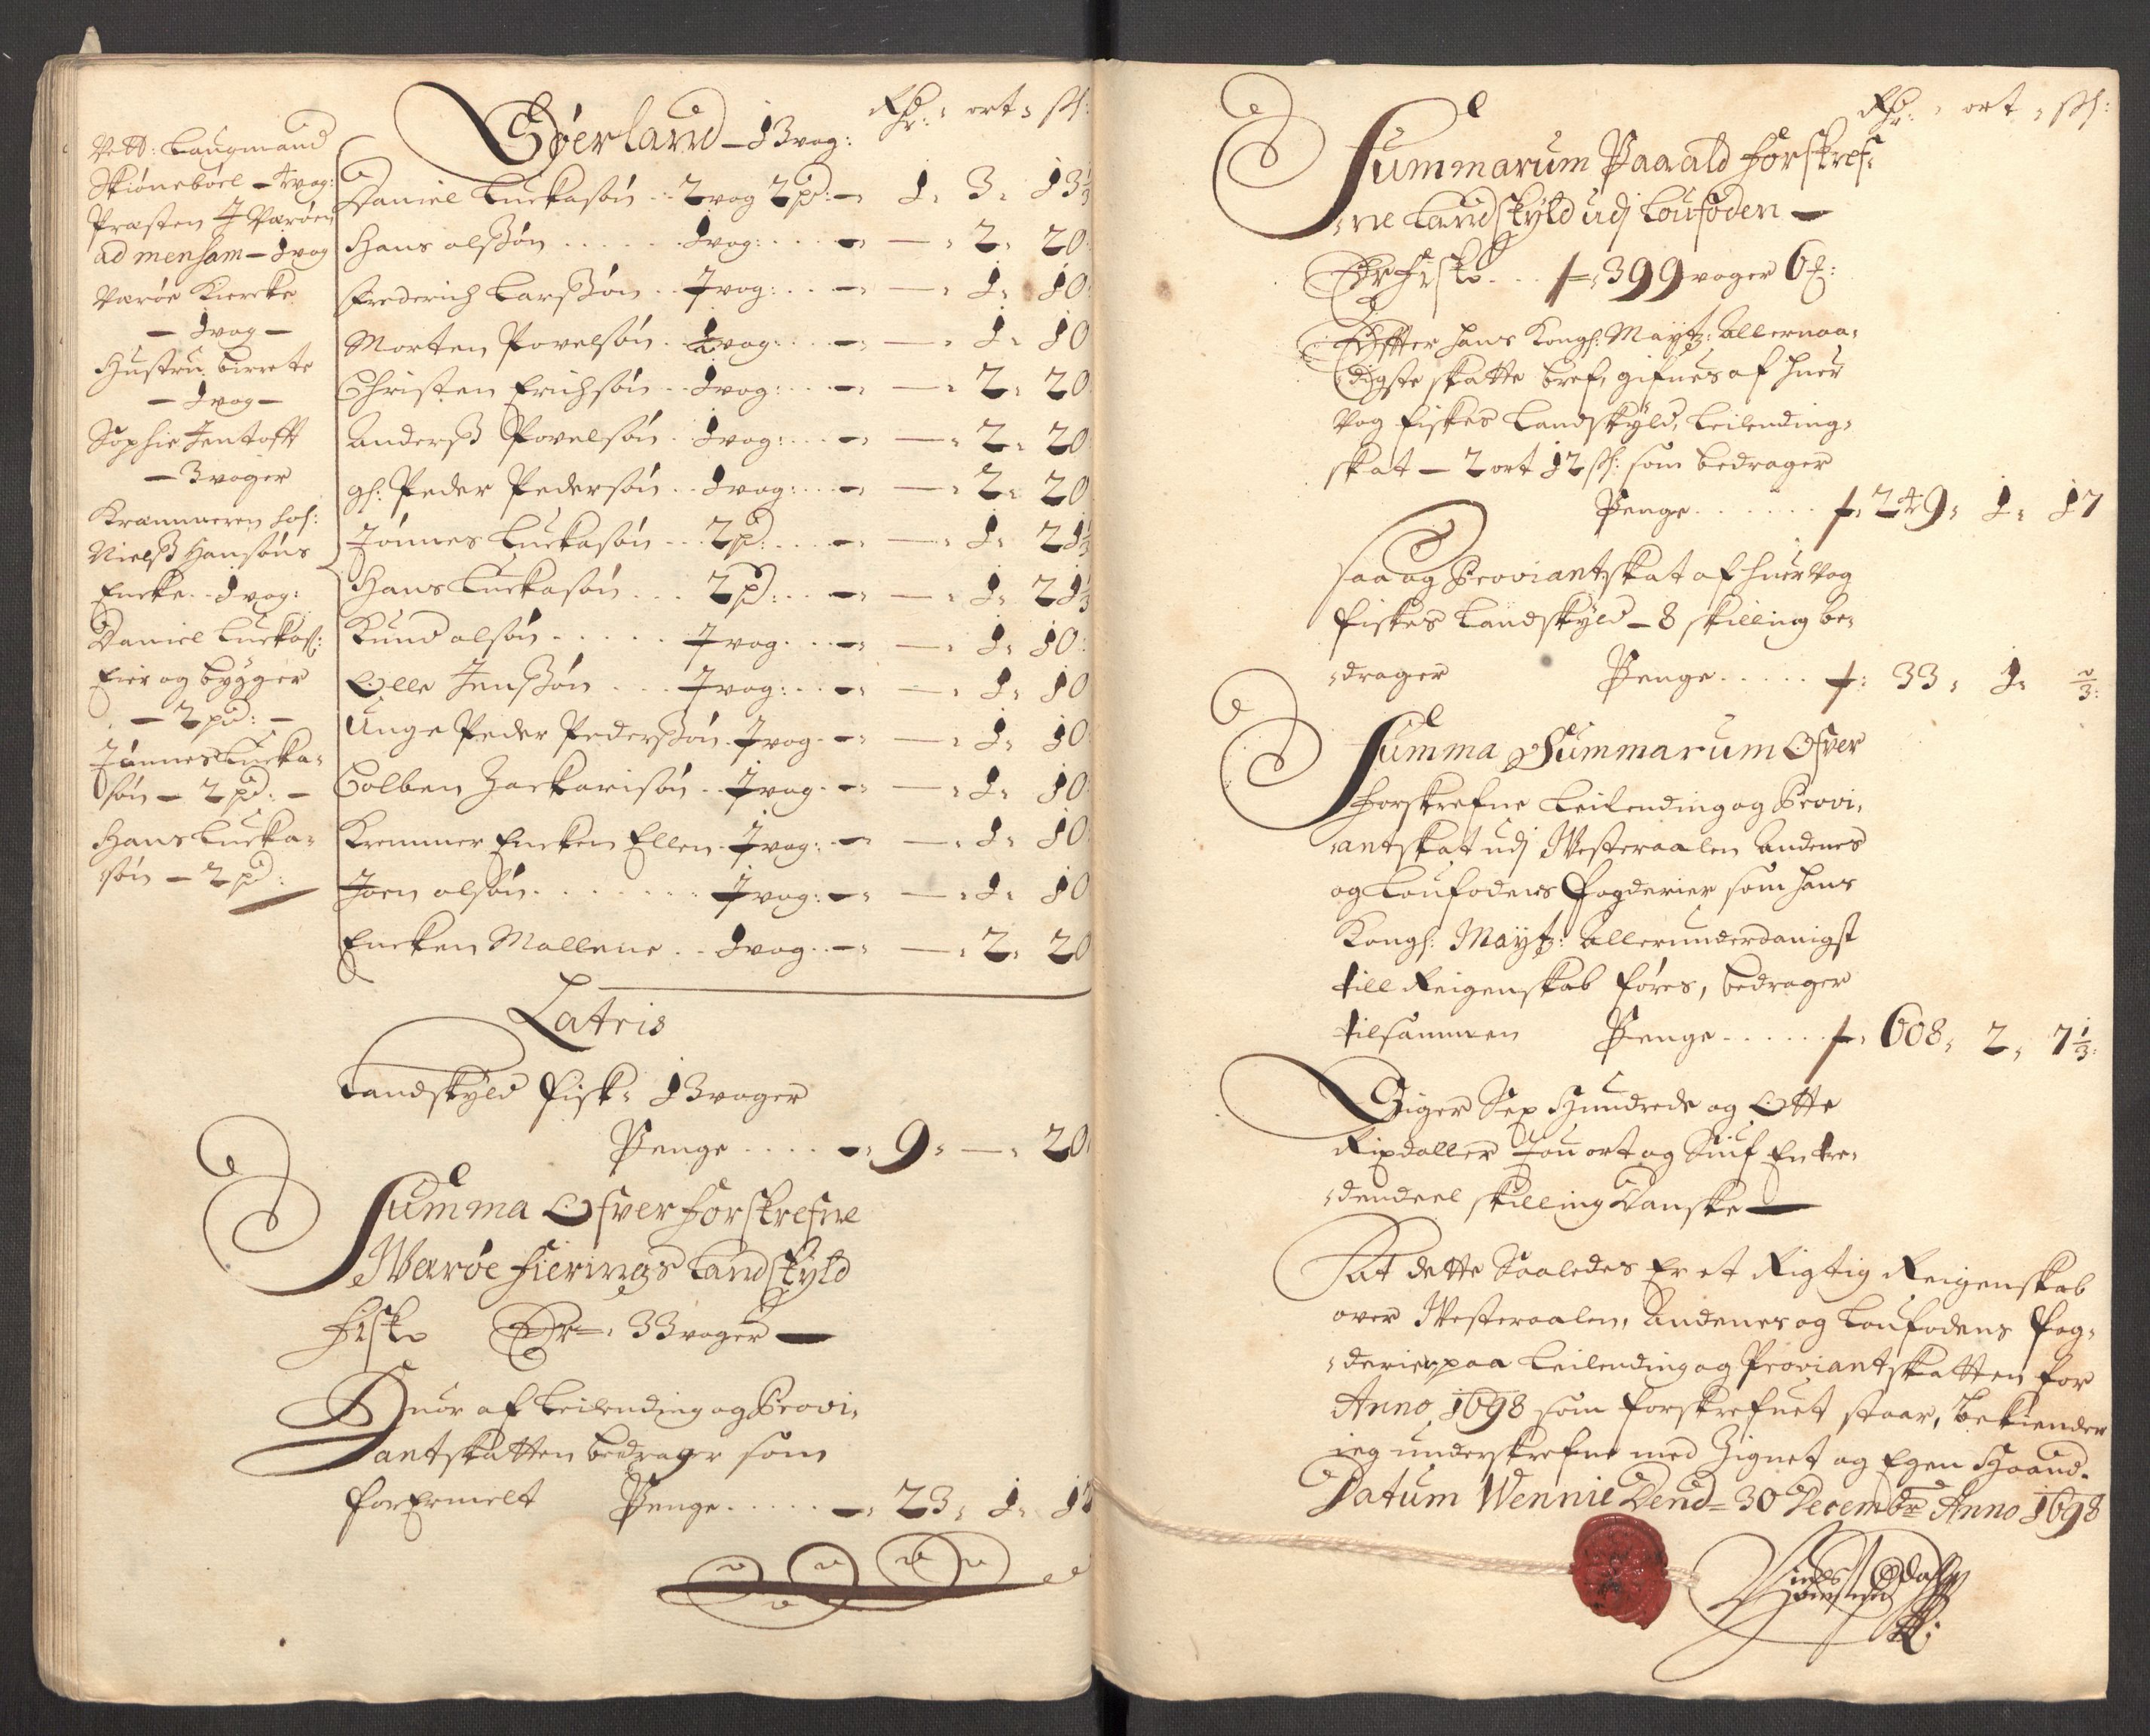 Rdr: ort: sk:
Søerland – 13 vog:
Vell: Laugmand
Skiønebøel – 4 vog:
Præsten I Værøen
ad mensam – 1 vog
Værøe Kiercke
– 1 vog –
Hustru birrete
– 1 vog –
Sophie Jentofft
– 3 voger
Kræmmeren sal:
Nielß Hansøns
Encke . . 1 vog:
Daniel Luckas:
Eier og bygger
– 2 pd: –
Jonnes Lucka-
søn – 2 pd: –
Hans Lucka-
søn – 2 pd:
Daniel Luckasøn . . 2 vog 2 pd: – 1. 3. 13 1/3
Hans olßøn . . . . . 1 vog: . . . – — . 2. 20.
Frederich Larßøn . . ½ vog: . . . – — . 1. 10.
Morten Povelsøn . . ½ vog: . . . – — . 1. 10
Christen Erichsøn . . 1 vog: . . . – — . 2. 20.
Anderß Povelsøn . 1 vog: . . . – — . 2. 20
gl: Peder Pedersøn . . 1 vog: . . . – — . 2. 20
Jonnes Luckasøn . . . 2 pd: . . . – — . 1. 21 1/3
Hans Luckasøn . . . 2 pd: . . . – — . 1. 21 1/3
Knud olsøn . . . . . ½ vog . . . – — . 1. 10.
Olle Jenßøn . . . ½ vog: . . . – — . 1. 10
Unge Peder Pederßøn . ½ vog . – — . 1. 10
Colben Zackarisøn . . ½ vog . – — . 1. 10.
Kremmer Encken Ellen . ½ vog: . – — . 1. 10.
Joen olsøn . . . . . . . ½ vog: – — . 1. 10
Encken Mallene . . 1 vog . . – — . 2. 20
Latris
Landskyld fisk: 13 voger
Penge . . . . – 9. — . 20.
Summa Ofver forskrefne
Værøe fierings Landskyld
Fisk Er – 33 voger —
Huor af Leilending og Provi-
antskatten bedrager som
forermelt Penge . . . . . – 23. 1.
Rdr: ort: sk:
Summarum Paa ald forskref-
ne Landskyld udj Loufoden –
Er Fiske . . . f – 399 voger
Effter hans Kongl: Maytz: Allernaa-
digste skatte bref, gifves af huer
Vog fiskes Landskyld, Leilending-
skat – 2 ort 12 sk: som bedrager
Penge . . . . . . . f. 249. 1. 17
saa og Proviantskat af huer Vog
fiskes Landskyld – 8 skilling be-
drager Penge . . . . . f. 33. 1. 2/3:
Summa Summarum Ofver
forskrefne Leilending og Provi-
antskat udj Westeraalen Andenes
og Loufodens fogderier som hans
Kongl: Maytz: Allerunderdanigst
till Reigenskab føres, bedrager
tilsammen Penge . . . . . . f. 608. 2. 7 1/3:
Siger Sex Hundrede og Otte
Rixdaller Tou ort og Siuf En tre-
dendeel skilling Danske —
At dette Saaledes Er et Rigtig Reigenskab
over Westeraalen, Andenes og Loufodens fog-
derier paa Leilending og Proviantskatten for
Anno 1698 som forskrefuet staar, bekiender
ieg underskrefne med Zignet og Egen Haand.
Datum Wennie Dend – 30 Decembr Anno 1698